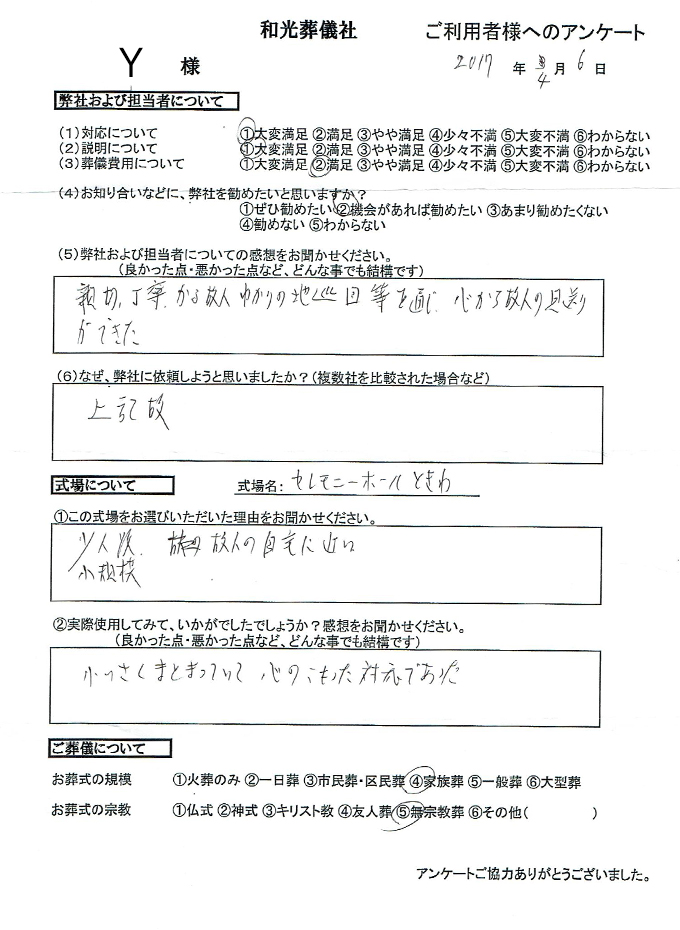 和光葬儀社 ご利用者様へのアンケート
Y 様 2017 年 4 月 6 日
弊社および担当者について
(1)対応について ①大変満足 ②満足 ③やや満足 ④少々不満 ⑤大変不満 ⑥わからない
(2)説明について ①大変満足 ②満足 ③やや満足 ④少々不満 ⑤大変不満 ⑥わからない
(3)葬儀費用について ①大変満足 ②満足 ③やや満足 ④少々不満 ⑤大変不満 ⑥わからない
(4)お知り合いなどに、弊社を勧めたいと思いますか？
①ぜひ勧めたい ②機会があれば勧めたい ③あまり勧めたくない
④勧めない ⑤わからない
(5)弊社および担当者についての感想をお聞かせください。
(良かった点・悪かった点など、どんな事でも結構です)
親切、丁寧、かる故人ゆかりの地巡回等を通じ 心から故人の見送り
ができた
(6)なぜ、弊社に依頼しようと思いましたか？(複数社を比較された場合など)
上記故
式場について 式場名: セレモニーホールときわ
①この式場をお選びいただいた理由をお聞かせください。
少人数、 故人の自宅に近い
小規模
②実際使用してみて、いかがでしたでしょうか？感想をお聞かせください。
(良かった点・悪かった点など、どんな事でも結構です)
小っさくまとまっていて 心のこもった対応であった
ご葬儀について
お葬式の規模 ①火葬のみ ②一日葬 ③市民葬・区民葬 ④家族葬 ⑤一般葬 ⑥大型葬
お葬式の宗教 ①仏式 ②神式 ③キリスト教 ④友人葬 ⑤無宗教葬 ⑥その他( )
アンケートご協力ありがとうございました。